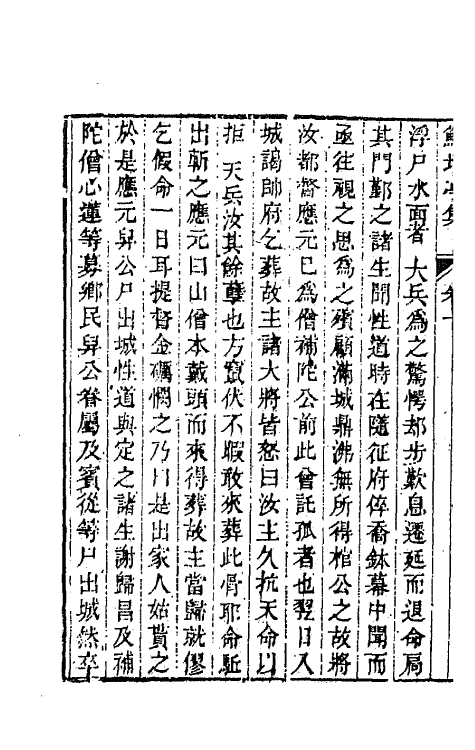 鮚埼亭集　卷十
浮尸水面者　大兵為之驚愕却步歎息遷延而退命扃
其門鄞之諸生聞性道時在隨征府倅喬鉢幕中聞而
亟往視之思為之殯顧滿城鼎沸無所得棺公之故將
汝都督應元已為僧補陀公前此曾託孤者也翌日入
城謁帥府乞葬故主諸大將皆怒曰汝主久抗天命以
拒　天兵汝其餘孽也方竄伏不暇敢來葬此骨耶命駈
出斬之應元曰山僧本戴頭而來得葬故主當歸就僇
乞假命一日耳提督金礪憫之乃曰是出家人始貰之
於是應元舁公尸出城性道與定之諸生謝歸昌及補
陀僧心蓮等募鄉民舁公眷屬及賓從等尸出城然卒